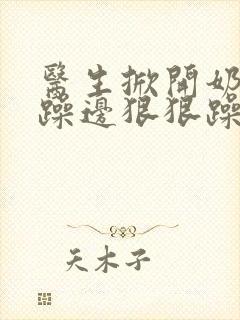 醫生掀開奶
躁邊狠狠躁
天木子